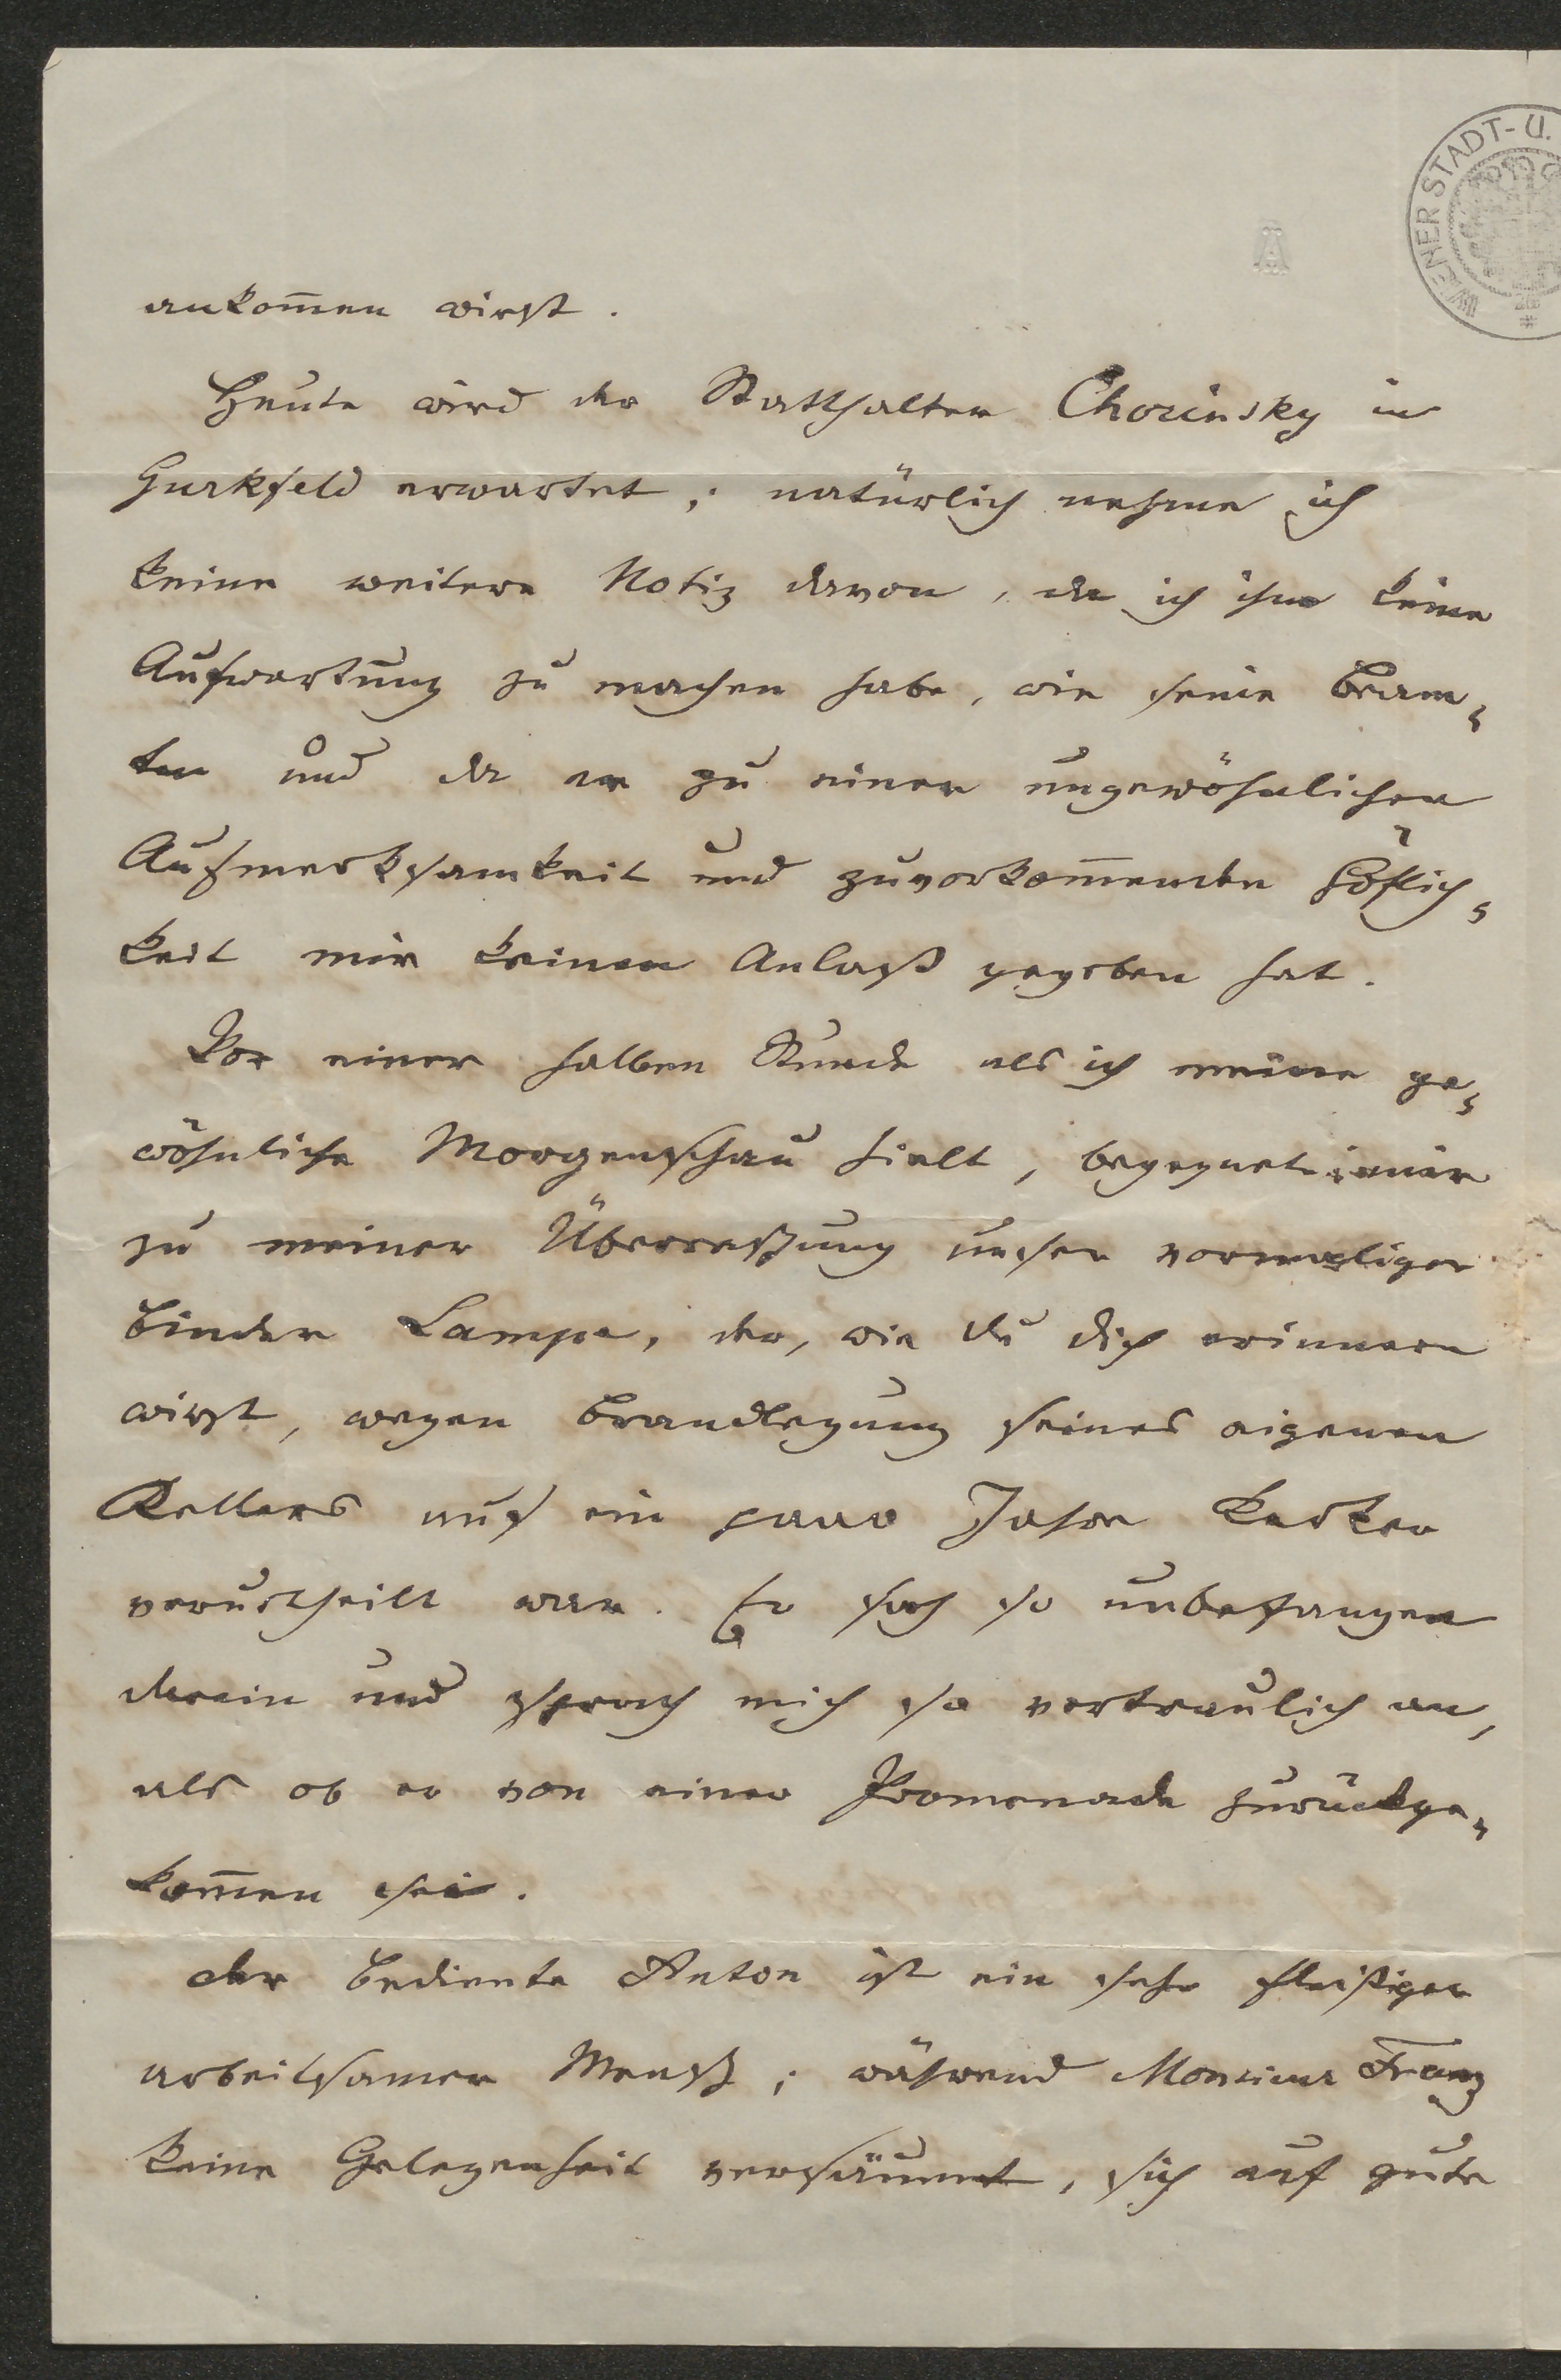 WIENER STADT- U.
A
ankom̄en wirst.
Heute wird der Statthalter Chorinsky in
Gurkfeld erwartet; natürlich nehme ich
keine weitere Notiz davon, da ich ihm keine
Aufwartung zu machen habe, wie seine Beam-
ten und da er zu einer ungewöhnlichen
Aufmerksamkeit und zuvorkom̄enden Höflich-
keit mir keinen Anlaß gegeben hat.
Vor einer halben Stunde als ich meine ge-
wöhnliche Morgenschau hielt, begegnete mir
zu meiner Überraschung unser vormaliger
Binder Lampe, der, wie du dich erinnern
wirst, wegen Brandlegung seines eigenen
Kellers auf ein paar Jahre Kerker
verurtheilt war. Er sah so unbefangen
darein und sprach mich so vertraulich an,
als ob er von einer Promenade zurückge-
kom̄en sei.
Der Bediente Anton ist ein sehr fleißiger
arbeitsamer Mensch; während Monsieur Franz
keine Gelegenheit versäumt, sich auf gute